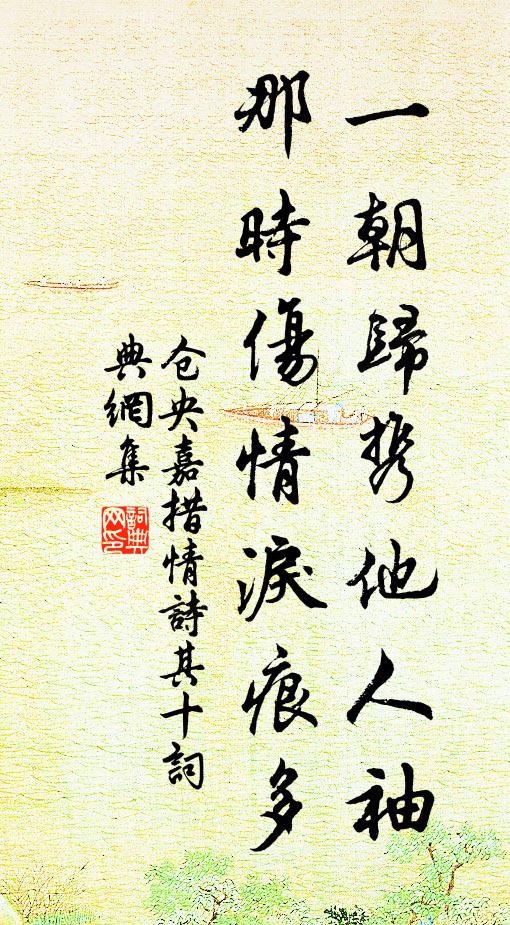 一朝歸携他人袖
那時傷情淚痕多
仓央嘉措情詩其十詞
典網集
詞典
网印